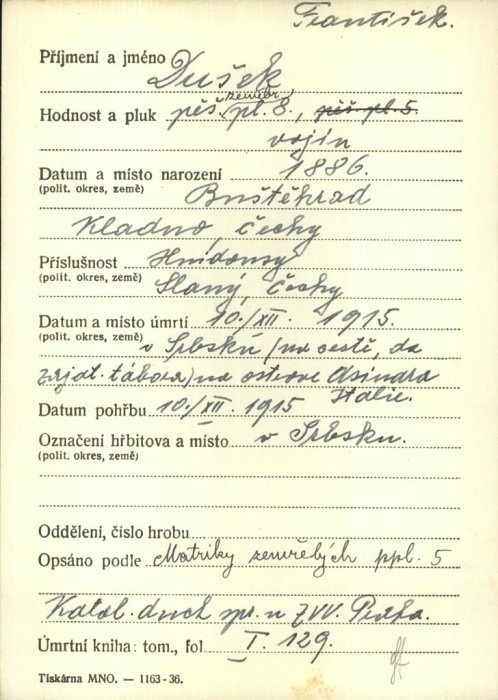 František.
Příjmení a jméno Dušek
zeměbr.
Hodnost a pluk pěš. pl. 8., pěš. pl. 5.
vojín
Datum a místo narození 1886.
(polit. okres, země) Buštěhrad
Kladno, Čechy
Příslušnost Hnidousy
(polit. okres, země) Slaný, Čechy
Datum a místo úmrtí 10./XII. 1915.
(polit. okres, země) v Srbsku (na cestě, do
zajat. tábora) na ostrově Asinara
Italie.
Datum pohřbu 10./XII. 1915
Označení hřbitova a místo v Srbsku.
(polit. okres, země)
Oddělení, číslo hrobu
Opsáno podle Matriky zemřelých ppl. 5
Katol. duch. spr. u ZVV. Praha.
Úmrtní kniha: tom., fol I. 129.
Tiskárna MNO. — 1163-36.